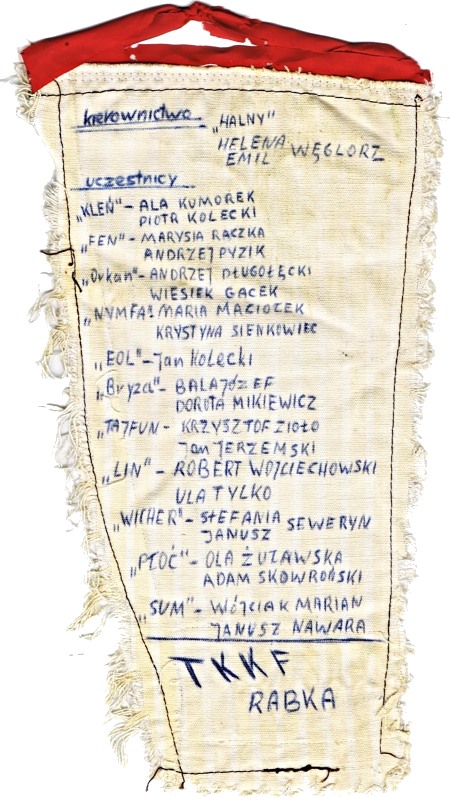 kierownictwo
„HALNY"
HELENA
EMIL WĘGLORZ
uczestnicy
„KLEŃ" - ALA KUMOREK
PIOTR KOLECKI
„FEN" - MARYSIA RĄCZKA
ANDRZEJ PYZIK
„Orkan" - ANDRZEJ DŁUGOŁĘCKI
WIESIEK GACEK
„NYMFA" MARIA MACIOŁEK
KRYSTYNA SIENKOWIEC
„EOL" - Jan Kolecki
„Bryza" - BALA JÓZEF
DOROTA MIKIEWICZ
„TAJFUN - KRZYSZTOF ZIOŁO
Jan JERZEMSKI
„LIN" - ROBERT WOJCIECHOWSKI
ULA TYLKO
„WICHER" - STEFANIA SEWERYN
JANUSZ
„PŁOĆ" - OLA ŻUŁAWSKA
ADAM SKOWROŃSKI
„SUM" - WÓJCIAK MARIAN
JANUSZ NAWARA
TKKF
RABKA